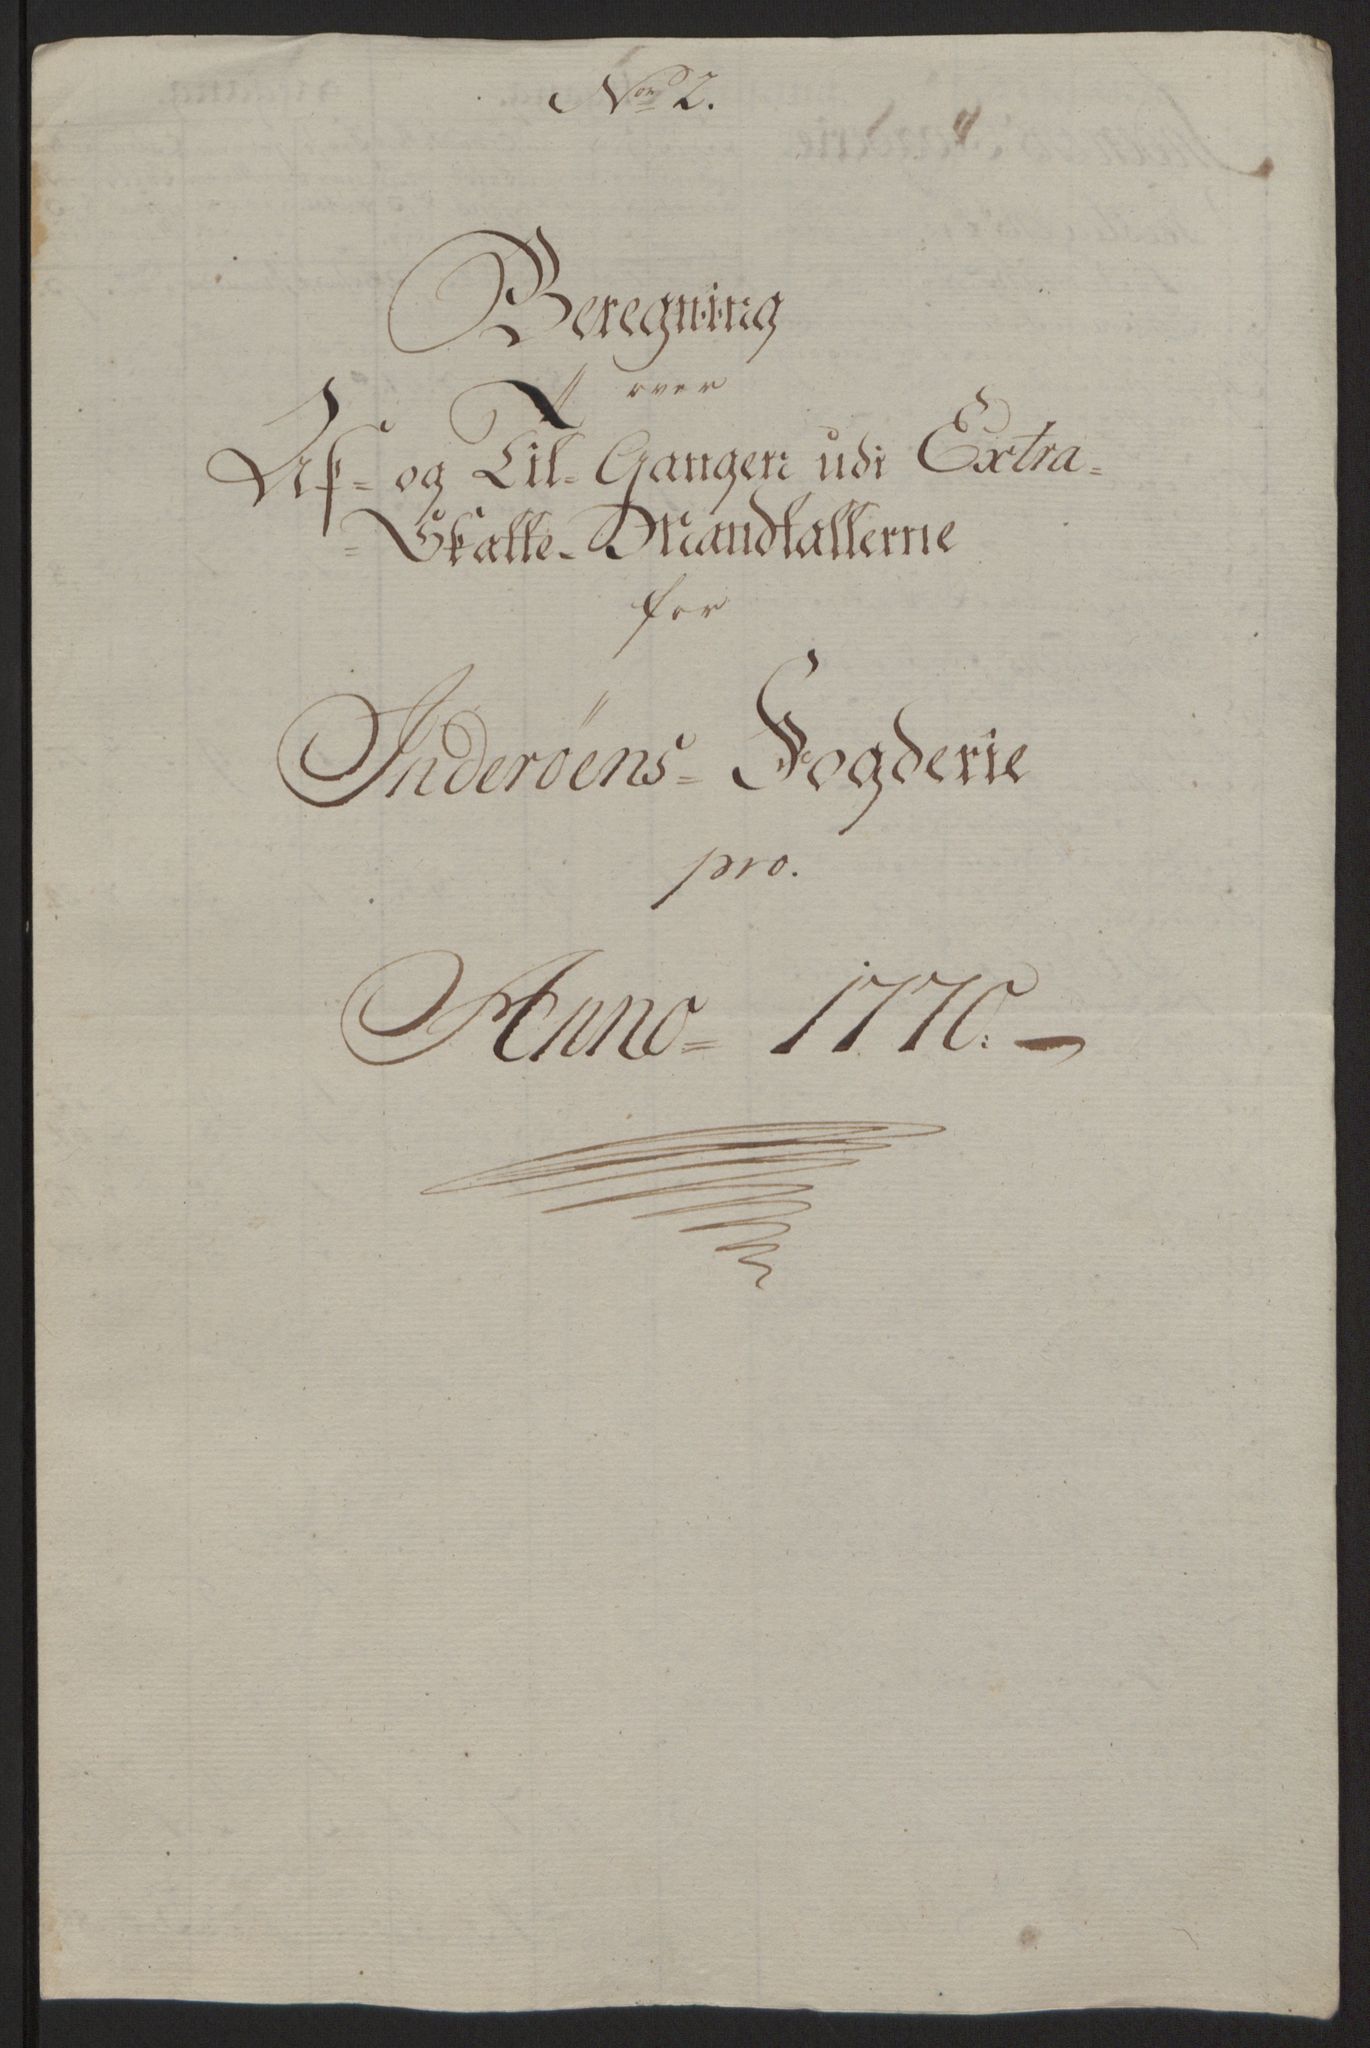 Non 2.
Beregning
over
Af- og Til-Gangen udi Extra-
=Skatte-Mandtallerne
for
Inderøens= Fogderie
pro.
Anno= 1770.